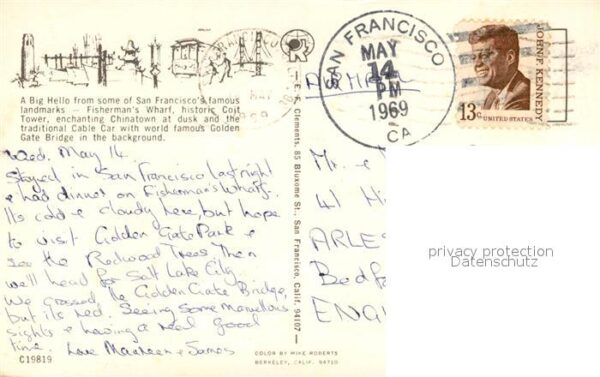 A Big Hello from some of San Francisco's famous
landmarks — Fisherman's Wharf, historic Coit
Tower, enchanting Chinatown at dusk and the
traditional Cable Car with world famous Golden
Gate Bridge in the background.
Wed. May 14.
Stayed in San Francisco last night
& had dinner on Fisherman's Wharf.
Its cold & cloudy here, but hope
to visit Golden Gate Park &
see the Redwood Trees. Then
we'll head for Salt Lake City.
We crossed the Golden Gate Bridge,
but its red. Seeing some marvellous
sights & having a real good
time. Love Maureen & James
C19819
COLOR BY MIKE ROBERTS
BERKELEY, CALIF. 94710
E. F. Clements, 85 Bluxome St., San Francisco, Calif. 94107
SAN FRANCISCO
MAY
14
PM
1969
CA
JOHN F. KENNEDY
13c UNITED STATES
Mr. &
41
ARLES
Bedf
ENG
privacy protection
Datenschutz